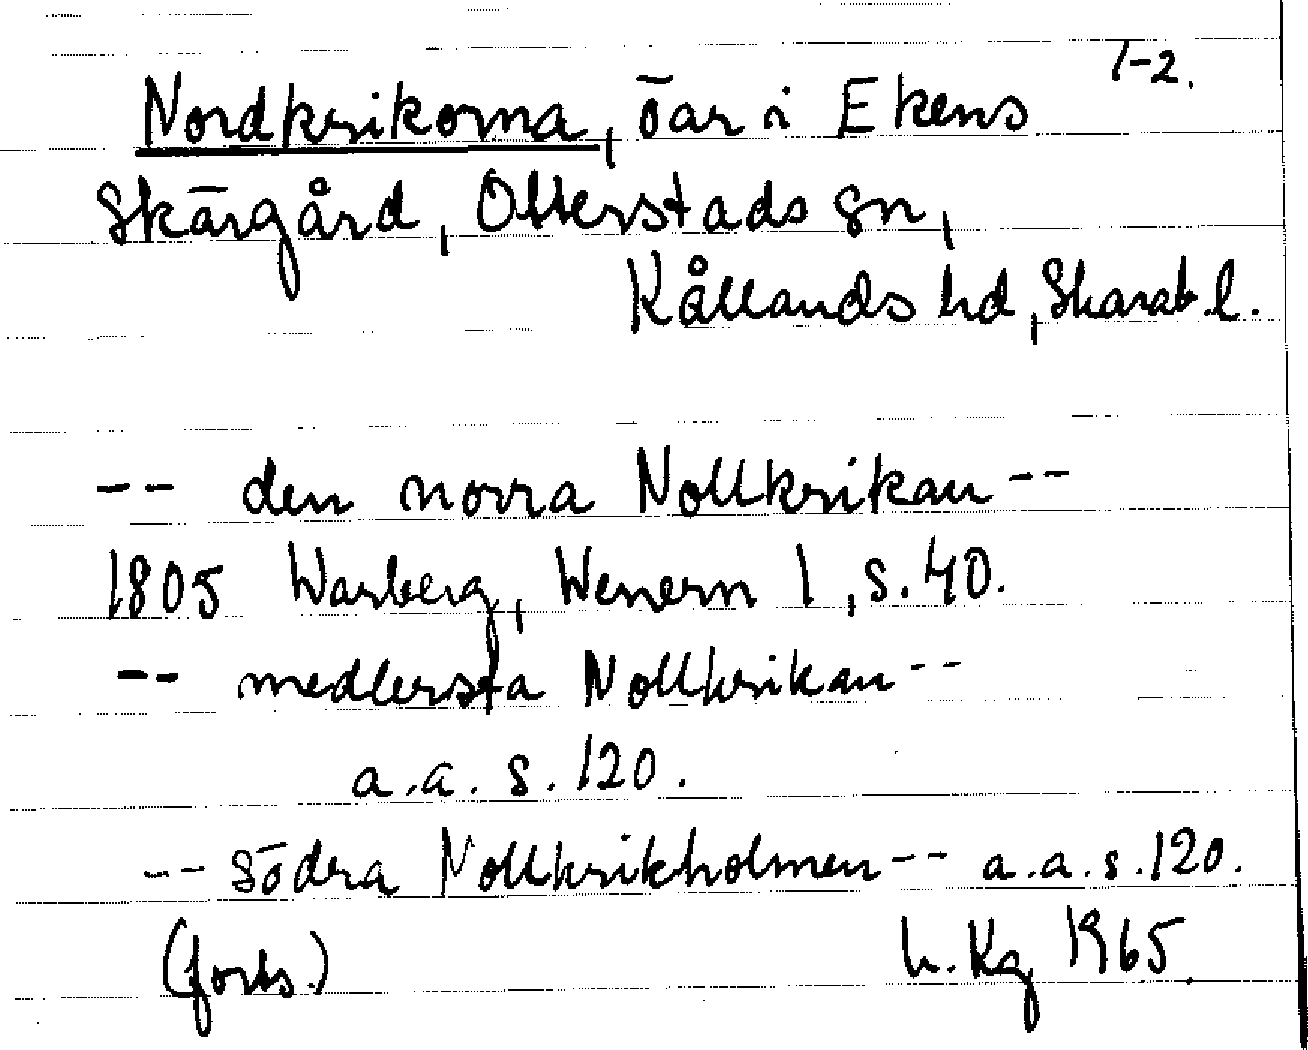 1-2.
Nordkrikorna, öar i Ekens
Skärgård, Otterstads sn,
Kållands hd, Skarab. l.
-- den norra Nollkrikan --
1805 Warberg, Wenern 1, s. 40.
-- medlersta Nollkrikan --
a.a. s. 120.
-- södra Nollkrikholmen -- a.a. s. 120.
(forts.) h. Kg 1965.